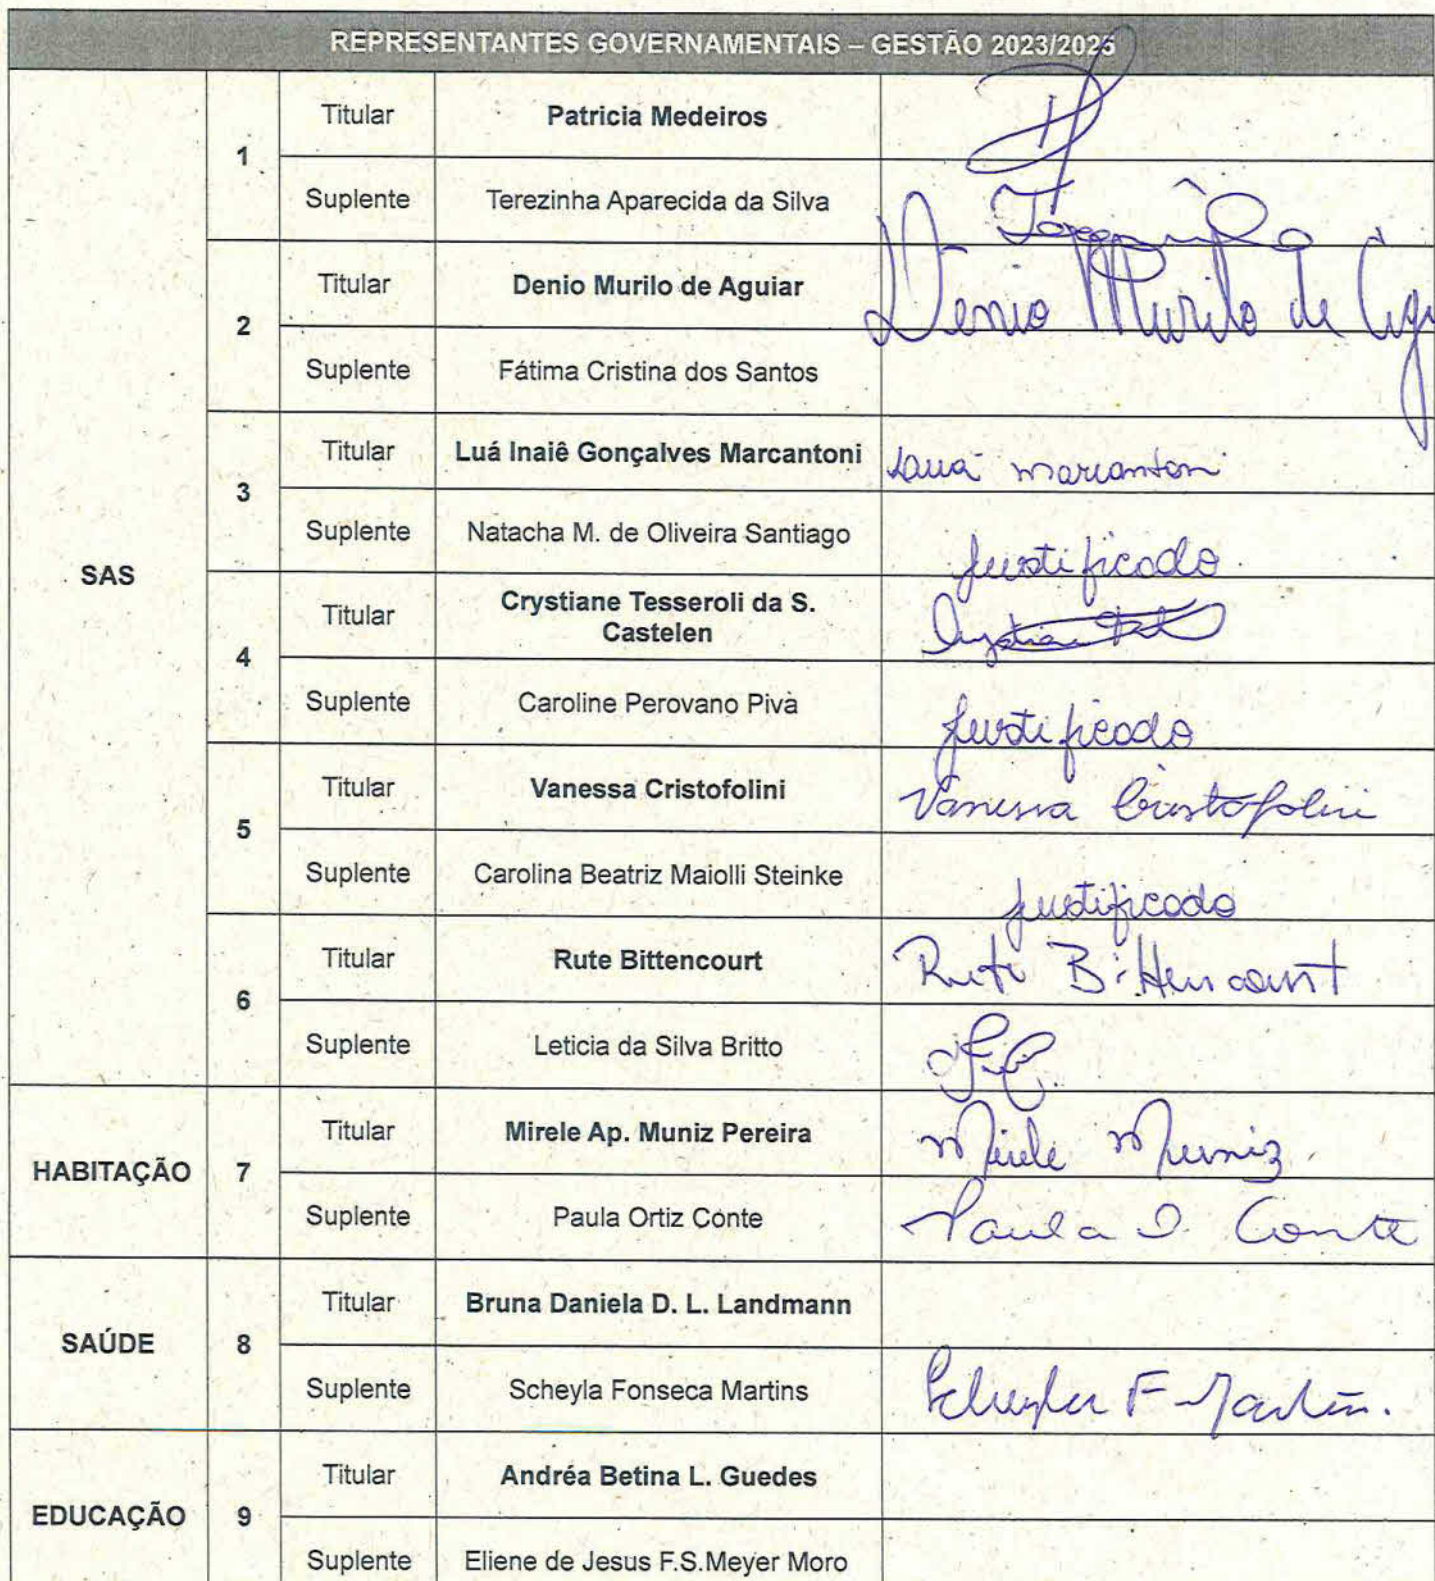 REPRESENTANTES GOVERNAMENTAIS – GESTÃO 2023/2025
SAS
1
Titular Patricia Medeiros
Suplente Terezinha Aparecida da Silva
2
Titular Denio Murilo de Aguiar Denio Murilo de
Suplente Fátima Cristina dos Santos
3
Titular Luá Inaiê Gonçalves Marcantoni Luá Marcantoni
Suplente Natacha M. de Oliveira Santiago justificado
4
Titular Crystiane Tesseroli da S.
Castelen
Suplente Caroline Perovano Piva justificado
5
Titular Vanessa Cristofolini Vanessa Cristofolini
Suplente Carolina Beatriz Maiolli Steinke justificado
6
Titular Rute Bittencourt Rute Bittencourt
Suplente Leticia da Silva Britto
HABITAÇÃO
7
Titular Mirele Ap. Muniz Pereira Mirele Muniz
Suplente Paula Ortiz Conte Paula O. Conte
SAÚDE
8
Titular Bruna Daniela D. L. Landmann
Suplente Scheyla Fonseca Martins Scheyla F Martins.
EDUCAÇÃO
9
Titular Andréa Betina L. Guedes
Suplente Eliene de Jesus F.S.Meyer Moro